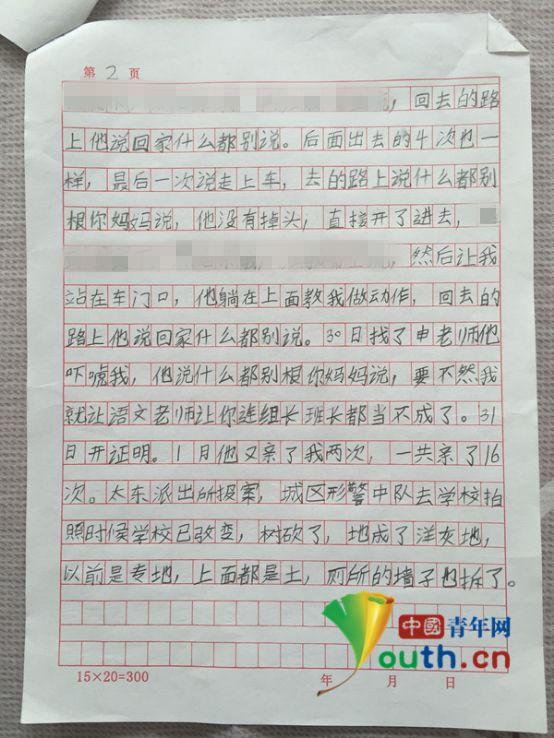 第 2 页
，回去的路
上他说回家什么都别说。后面出去的4次也一
样，最后一次说走上车，去的路上说什么都别
根你妈妈说，他没有掉头，直接开了进去，
，然后让我
站在车门口，他躺在上面教我做动作，回去的
路上他说回家什么都别说。30日找了申老师他
吓唬我，他说什么都别根你妈妈说，要不然我
就让语文老师让你连组长班长都当不成了。31
日开证明。1月他又亲了我两次，一共亲了16
次。太东派出所投案，城区形警中队去学校拍
照时候学校已改变，树砍了，地成了洋灰地，
以前是专地，上面都是土，厕所的墙子也拆了。
中國青年网
Youth.cn
15×20=300 年 月 日